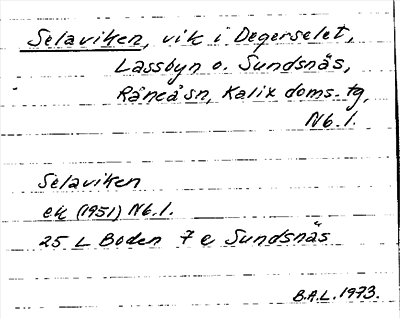 Selaviken, vik i Degerselet,
Lassbyn o. Sundsnäs,
Råneå sn, Kalix doms. tg,
Nb. l.
Selaviken
ek (1951) Nb. l.
25 L Boden 7 e Sundsnäs
B.A.L. 1973.